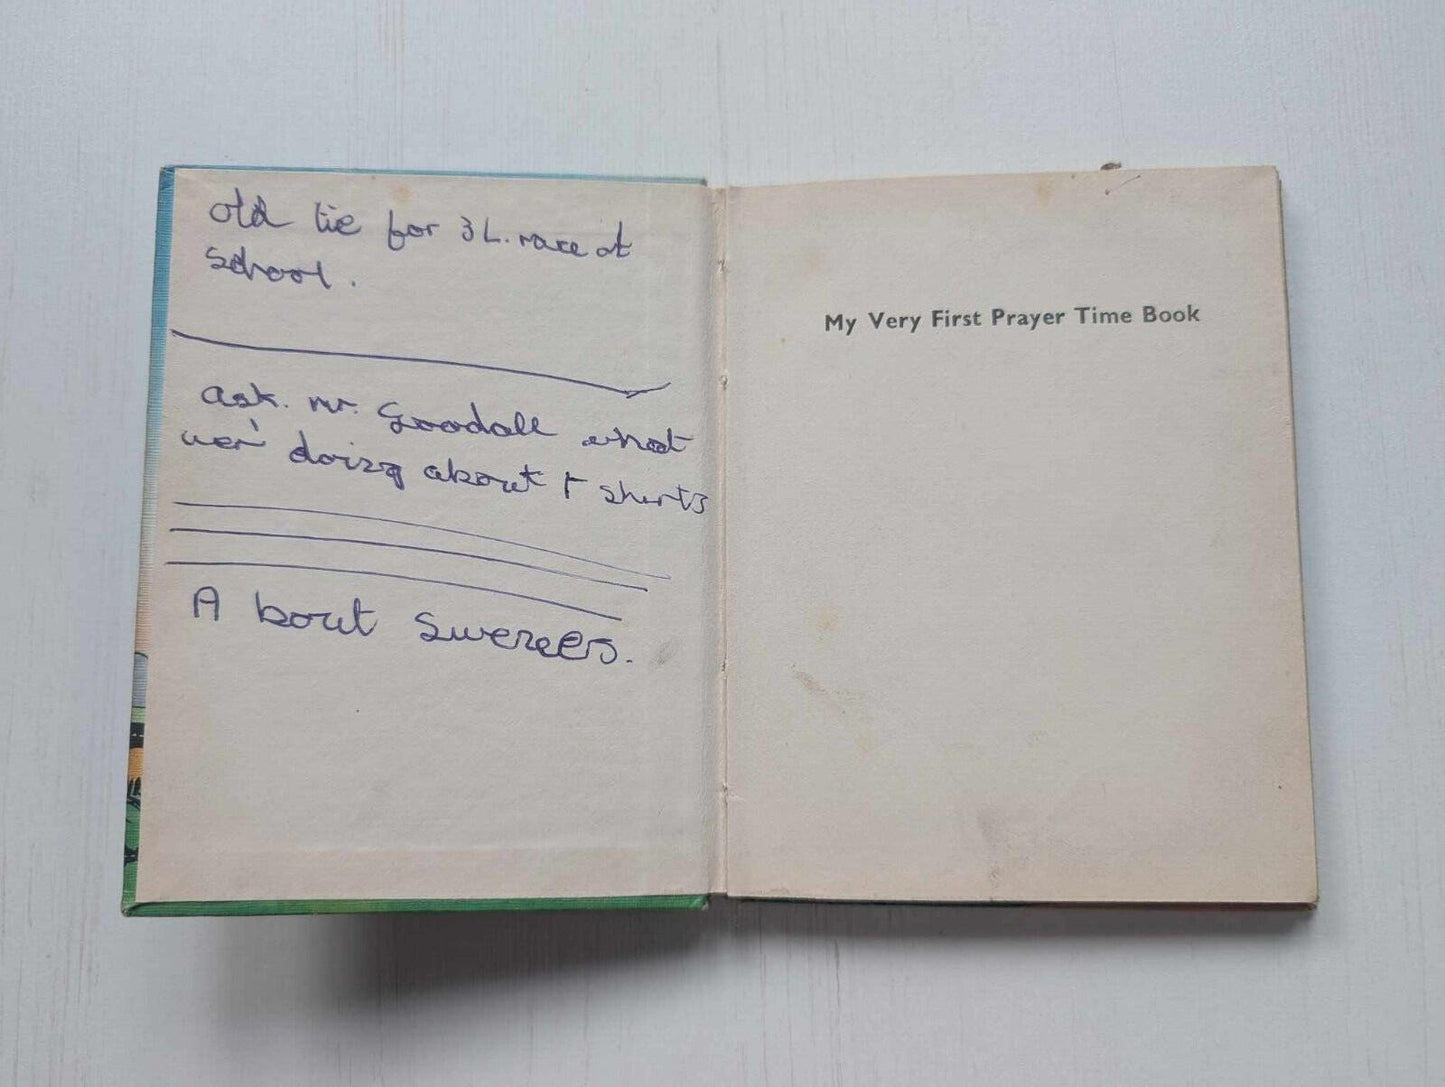 old tie for 3 L. race at
school.
ask. mr. Goodall what
wer' doing about T shirts
A bout
My Very First Prayer Time Book